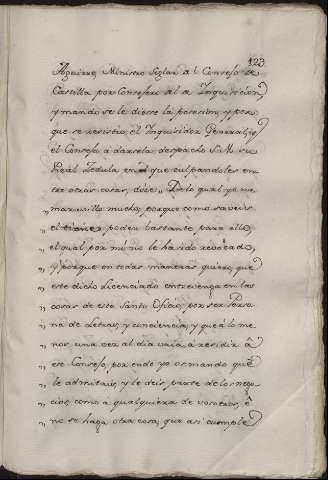 123
Aguirre, Ministro Seglar del Consejo de
Castilla por Consejero al de Inquisicion,
y mando se le diese la posesion, y por
que se resistio el Inquisidor General, y
el Consejo a darsela despachó S.M. su
Real Zedula en que culpandoles en
tre otras cosas, dice: De lo qual yo me
" maravillo mucho, porque como sabeis
el tiene poder bastante para ello,
el qual por mi no le ha sido revocado,
" y porque en todas maneras quiero, que
" este dicho Licenciado entrevenga en las
" cosas de este Santo Oficio, por ser Perso
" na de letras, y conciencia, y que à lo me
" nos, una vez al dia vaia à residir â
" ese Consejo, por ende yo os mando que
" le admitais, y le deis parte de los nego
" cios, como a qualquiera de vosotros, è
" no se haga otra cosa, que asi cumple